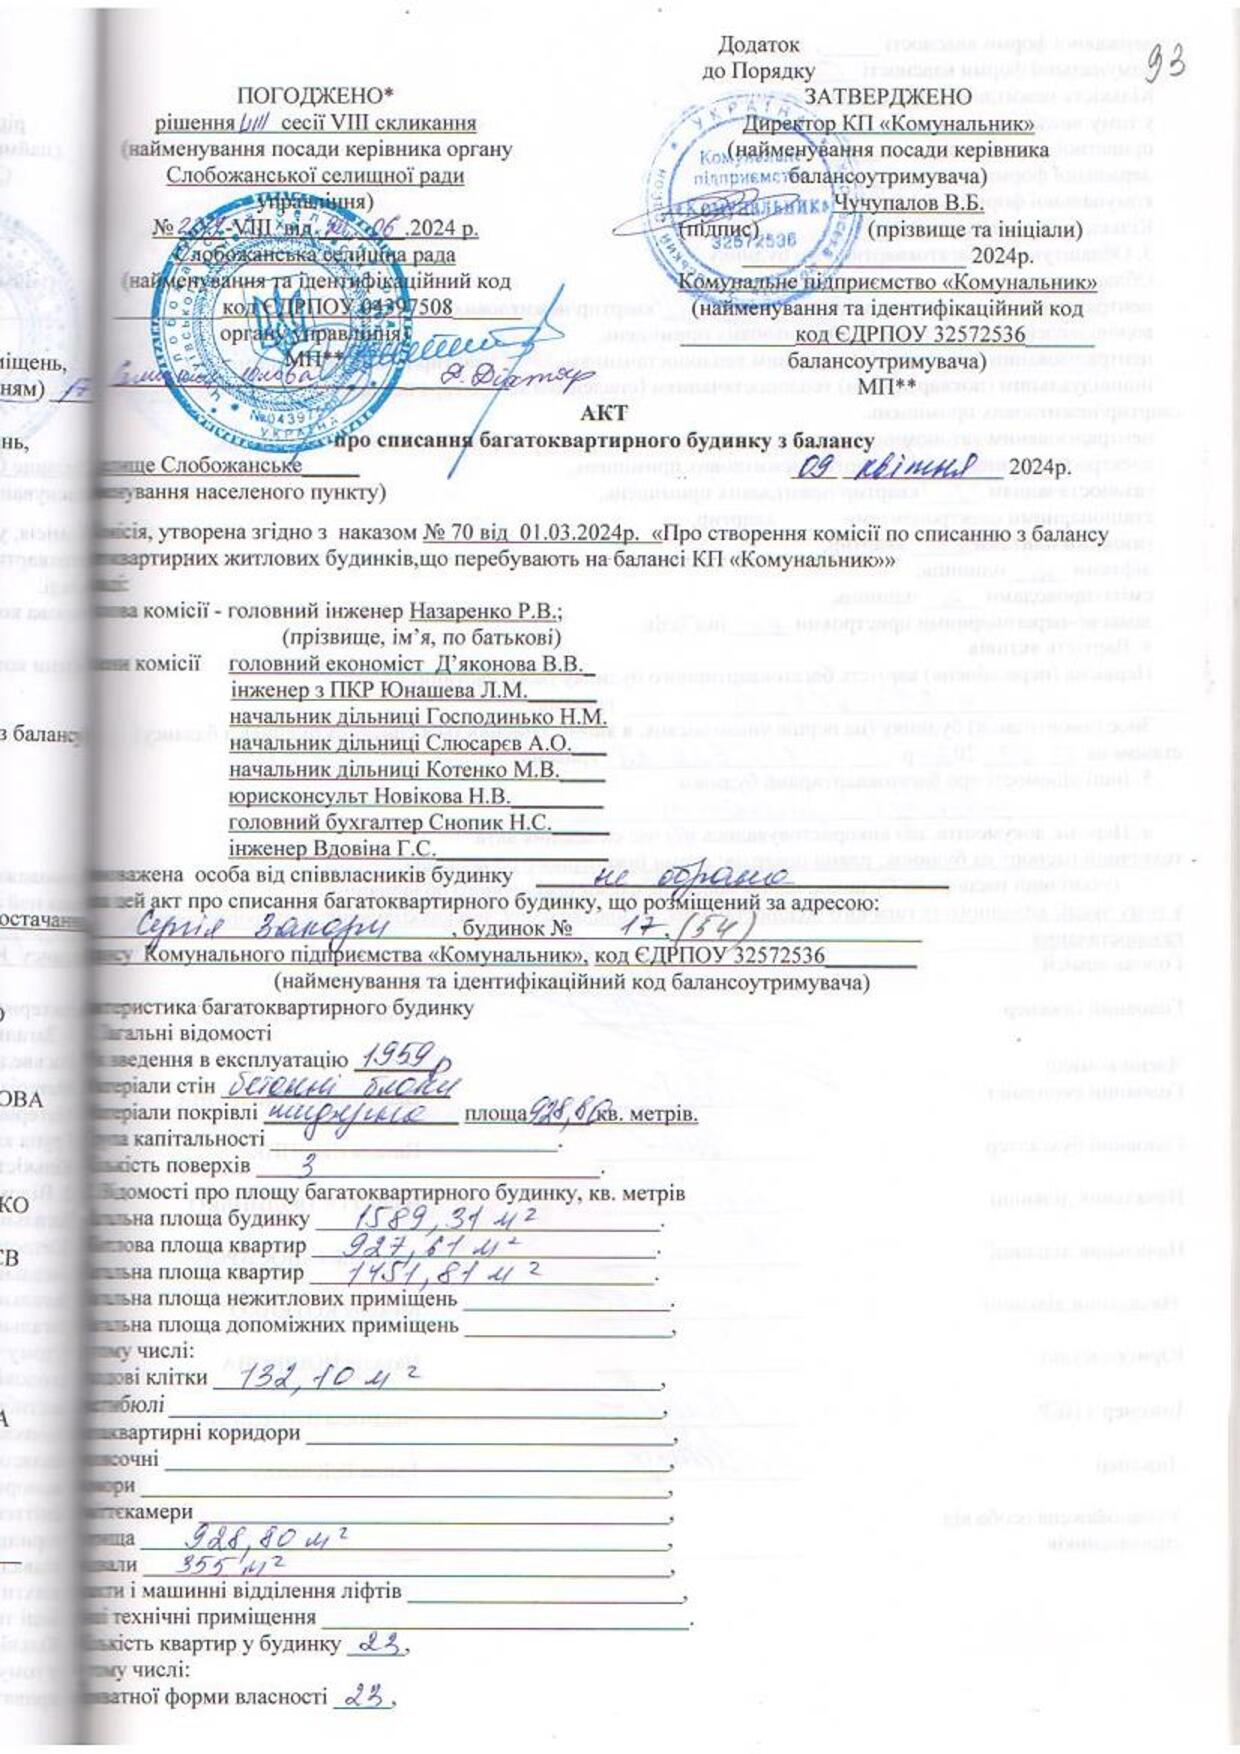 93
Додаток
до Порядку
ПОГОДЖЕНО*
рішення сесії VIII скликання
(найменування посади керівника органу
Слобожанської селищної ради
управління)
№ -VIII від 06 .2024 р.
Слобожанська селищна рада
(найменування та ідентифікаційний код
код ЄДРПОУ 04397508
органу управління)
МП**
ЗАТВЕРДЖЕНО
Директор КП «Комунальник»
(найменування посади керівника
балансоутримувача)
Чучупалов В.Б.
(підпис) (прізвище та ініціали)
2024р.
Комунальне підприємство «Комунальник»
(найменування та ідентифікаційний код
код ЄДРПОУ 32572536
балансоутримувача)
МП**
УКРАЇНА
Комунальне
підприємство
«Комунальник»
32572536
№04397508
УКРАЇНА
міщень,
ням) 17
нь,
з балансу
постачання
ОВА
КО
ЄВ
А
АКТ
про списання багатоквартирного будинку з балансу
лище Слобожанське 09 квітня 2024р.
нування населеного пункту)
місія, утворена згідно з наказом № 70 від 01.03.2024р. «Про створення комісії по списанню з балансу
квартирних житлових будинків,що перебувають на балансі КП «Комунальник»»
ова комісії - головний інженер Назаренко Р.В.;
(прізвище, ім’я, по батькові)
ени комісії головний економіст Д’яконова В.В.
інженер з ПКР Юнашева Л.М.
начальник дільниці Господинько Н.М.
начальник дільниці Слюсарєв А.О.
начальник дільниці Котенко М.В.
юрисконсульт Новікова Н.В.
головний бухгалтер Снопик Н.С.
інженер Вдовіна Г.С.
оважена особа від співвласників будинку не обрано
цей акт про списання багатоквартирного будинку, що розміщений за адресою:
Сергія Закори, будинок № 17,(54)
нсу Комунального підприємства «Комунальник», код ЄДРПОУ 32572536
(найменування та ідентифікаційний код балансоутримувача)
теристика багатоквартирного будинку
агальні відомості
введення в експлуатацію 1959р
теріали стін бетонні блоки
теріали покрівлі площа 928,80 кв. метрів.
упа капітальності .
ькість поверхів 3 .
ідомості про площу багатоквартирного будинку, кв. метрів
гальна площа будинку 1589,31 м² .
итлова площа квартир 927,61 м² .
гальна площа квартир 1451,81 м² .
гальна площа нежитлових приміщень .
гальна площа допоміжних приміщень ,
тому числі:
одові клітки 132,10 м² ,
стибюлі ,
заквартирні коридори ,
ясочні ,
мори ,
іттєкамери ,
рища 928,80 м² ,
двали 355 м² ,
хти і машинні відділення ліфтів ,
ші технічні приміщення .
лькість квартир у будинку 23,
тому числі:
иватної форми власності 23,